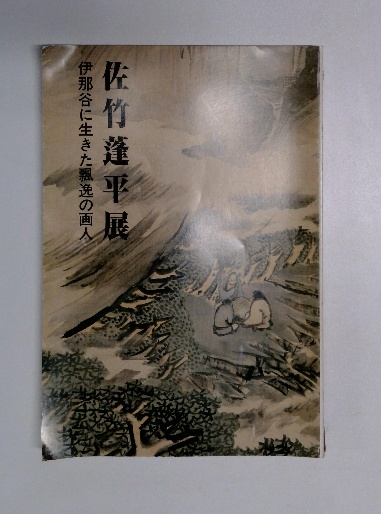 佐竹蓬平展
伊那谷に生きた飄逸の画人